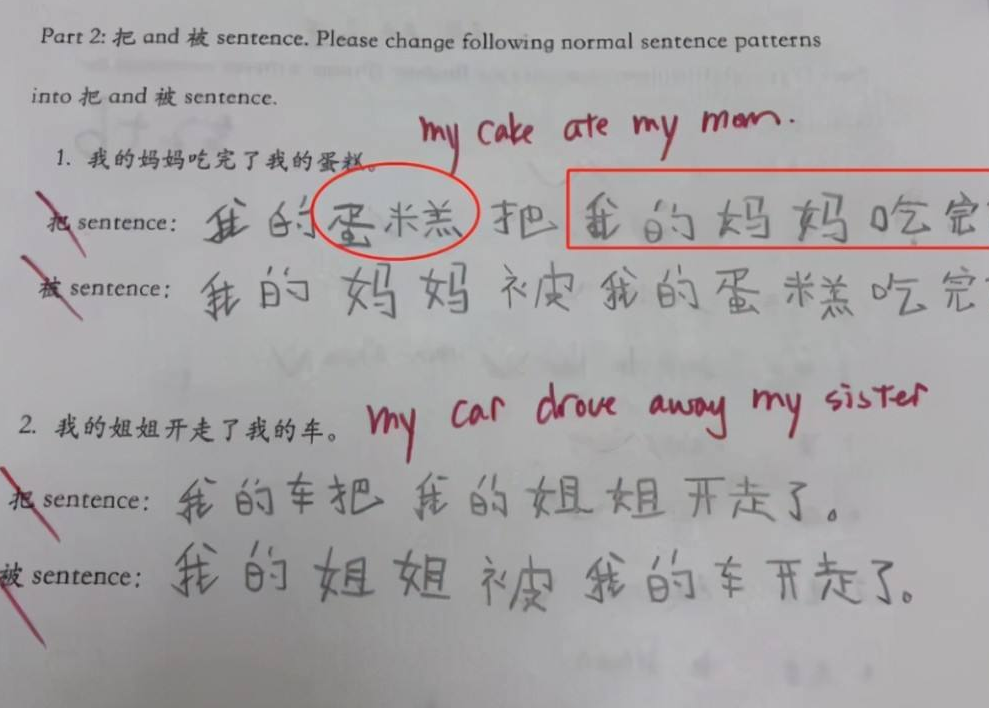 Part 2: 把 and 被 sentence. Please change following normal sentence patterns
into 把 and 被 sentence.
my cake ate my mom.
1. 我的妈妈吃完了我的蛋糕。
把 sentence: 我的蛋糕把我的妈妈吃完
被 sentence: 我的妈妈被我的蛋糕吃完
my car drove away my sister
2. 我的姐姐开走了我的车。
把 sentence: 我的车把我的姐姐开走了。
被 sentence: 我的姐姐被我的车开走了。